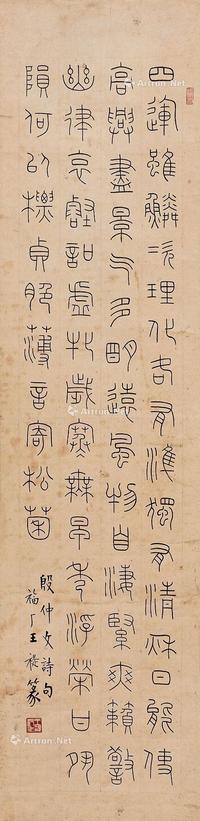 四運雖鱗次理化各有準獨有清秋日能使
高興盡景气多明遠風物自淒緊爽籟警
幽律哀壑叩虛牝歲寒無早秀浮榮甘夙
隕何以標貞脆薄言寄松菌
殷仲文詩句
福厂王禔篆